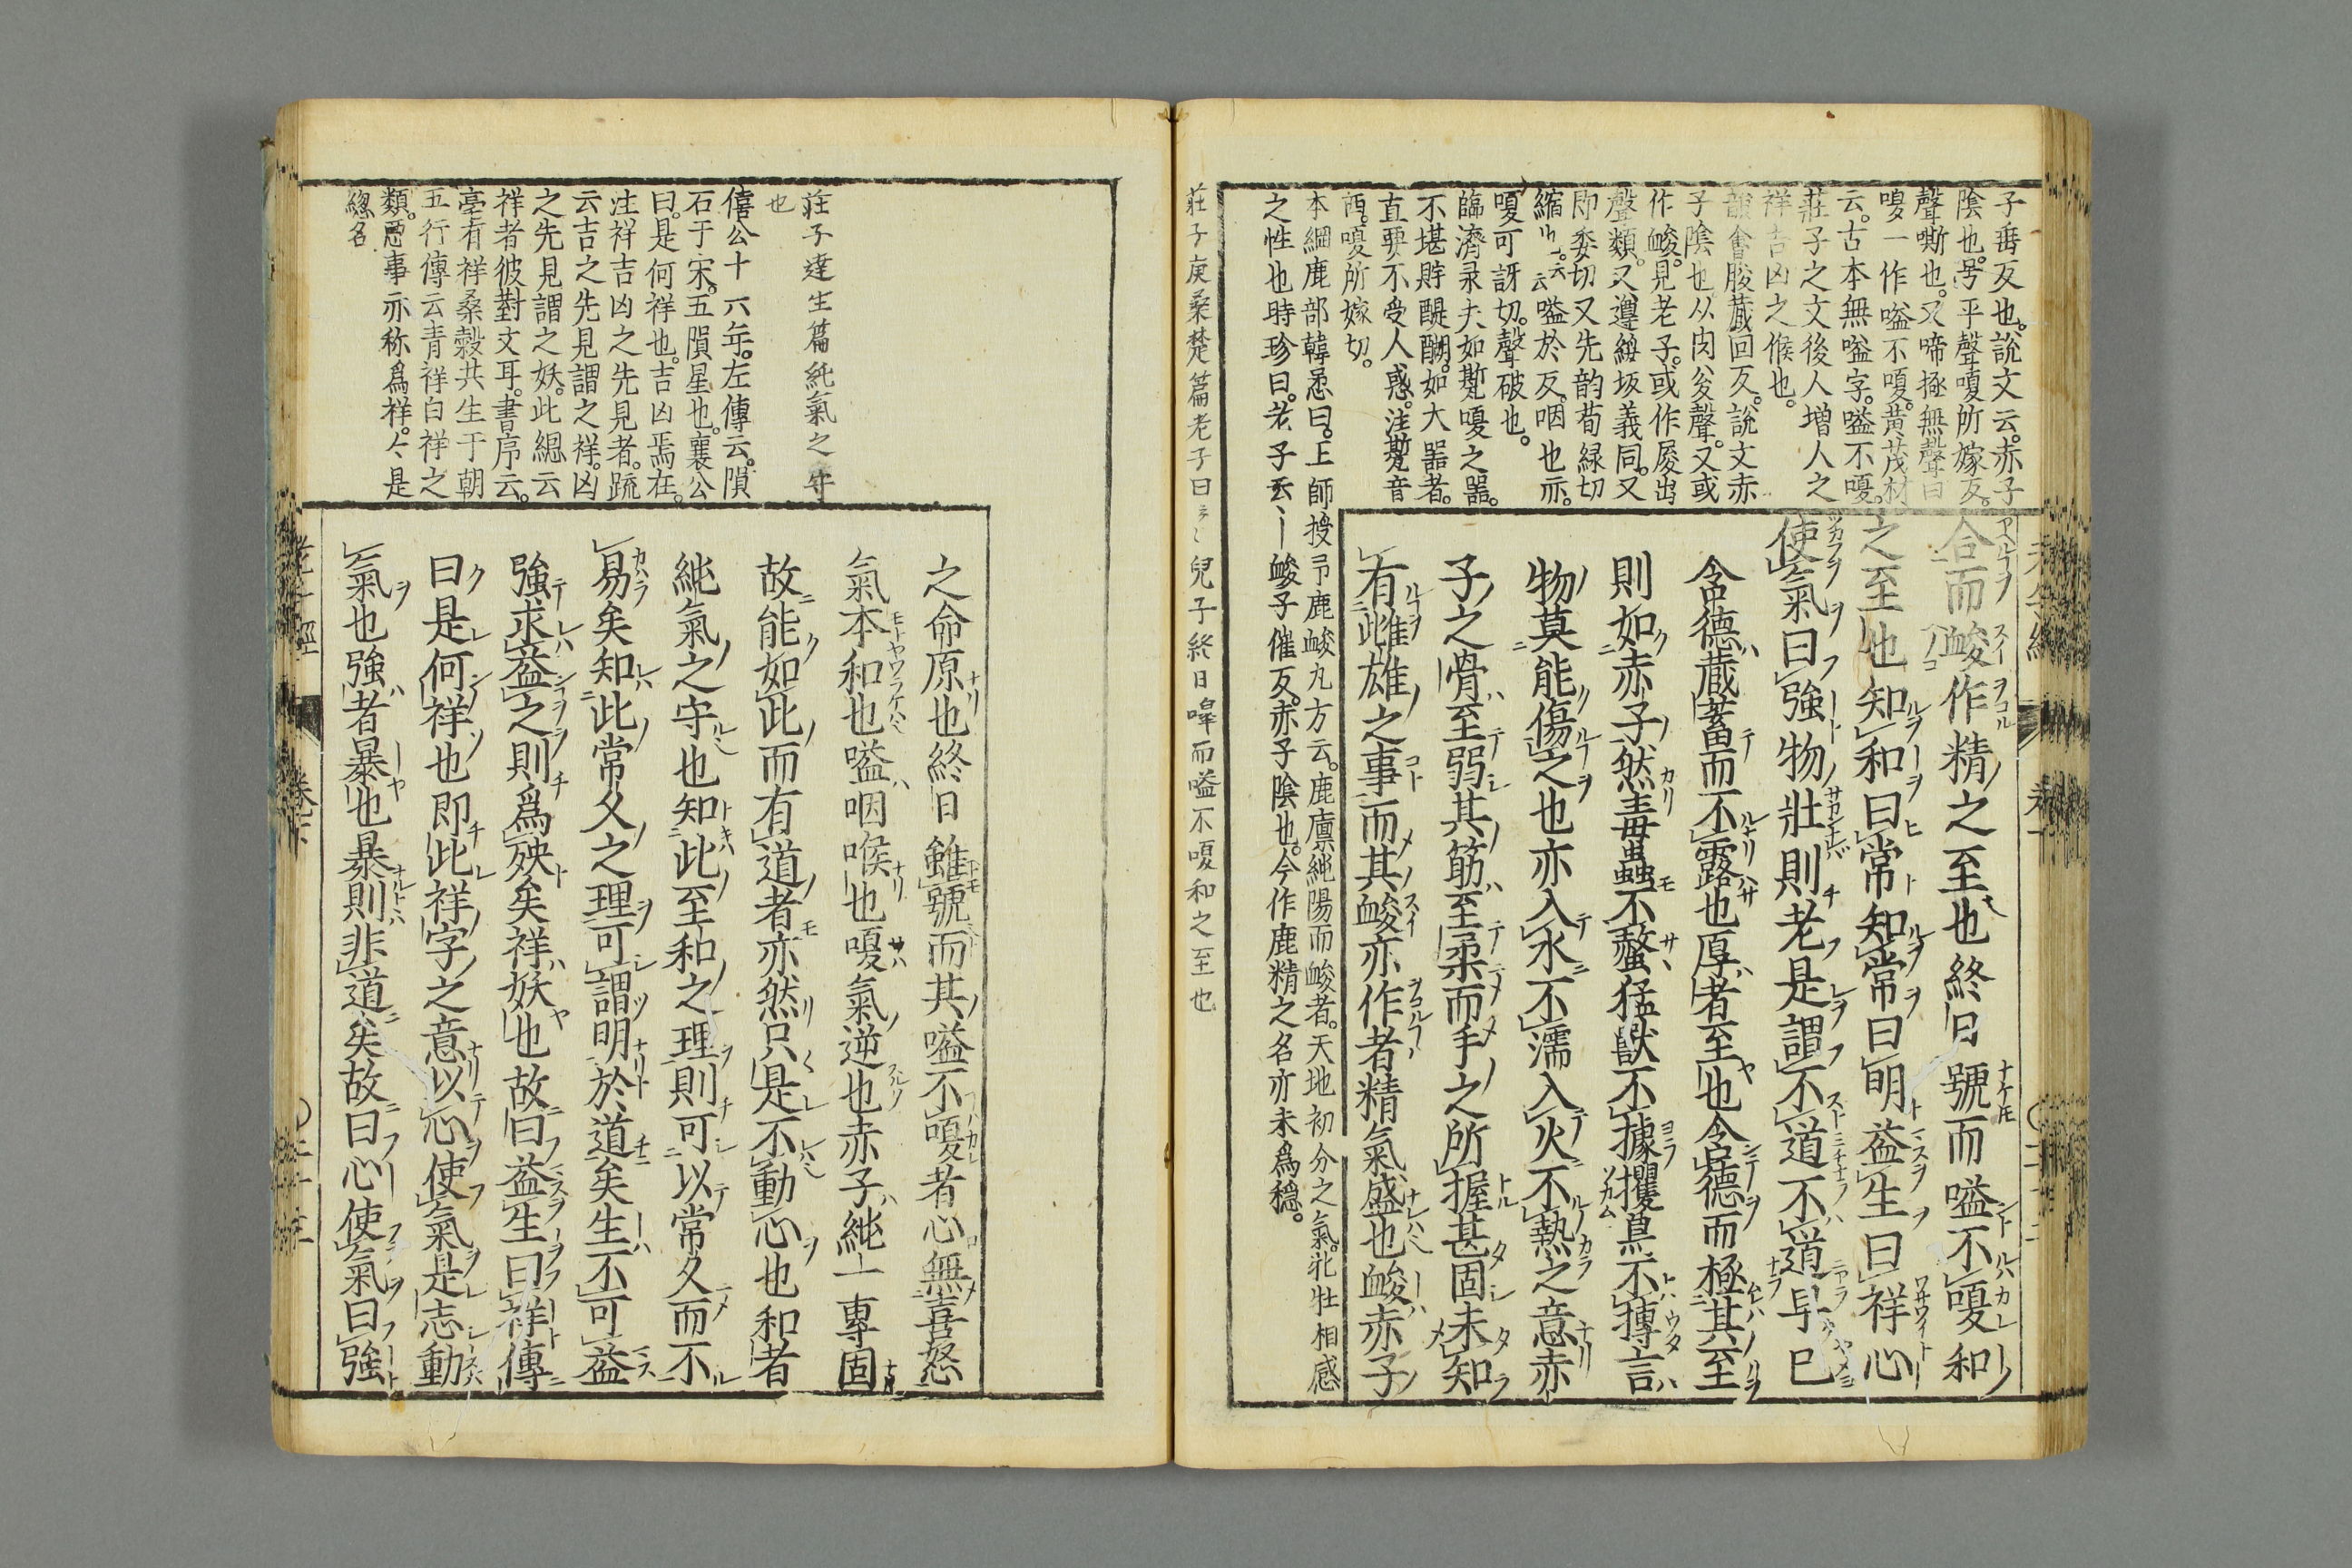 子垂反也。說文云。赤子
陰也。号平聲嗄所嫁反。
聲嘶也。又啼極無聲曰
嗄一作嗌不嗄。黃茂材
云。古本無嗌字。嗌不嗄。
莊子之文後人增人之
祥吉凶之候也。
韻會朘臧回反。說文赤
子陰也从肉夋聲。又或
作峻。見老子。或作㞗出
聲類。又遵綏坂義同。又
即委切又先韵荀緣切
縮也。云嗌於反。咽也亦。
嗄可訝切。聲破也。
臨濟录夫如甓嗄之噐。
不堪貯醍醐。如大噐者。
直要不受人惑。注甓音
西。嗄所嫁切。
本綱鹿部韓悉曰。王師授弓鹿峻丸方云。鹿廩純陽而峻者。天地初分之氣。牝牡相感
之性也時珍曰。老子云丨峻子催反。赤子陰也。今作鹿精之名亦未爲穏。
莊子庚桑楚篇老子曰兒子終日嘷而嗌不嗄和之至也
合而峻作精之至也終日號而嗌不嗄和
之至也知和曰常知常曰明益生曰祥心
使氣曰強物壯則老是謂不道不道早已
含德蔵蓄而不露也厚者至也含德而極其至
則如赤子然毒蟲不螫猛獸不據攫鳥不搏言
物莫能傷之也亦入水不濡入火不熱之意赤
子之骨至弱其筋至柔而手之所握甚固未知
有雌雄之事而其峻亦作者精氣盛也峻赤子
莊子達生篇純氣之守
也
僖公十六年。左傳云。隕
石于宋。五隕星也。襄公
曰。是何祥也。吉凶焉在。
注祥吉凶之先見者。䟽
云吉之先見謂之祥。凶
之先見謂之妖。此緫云
祥者彼對文耳。書序云。
亳有祥桑榖共生于朝
五行傳云青祥白祥之
類。悪事亦称爲祥。仐是
緫名
之命原也終日雖號而其嗌不嗄者心無喜怒
氣本和也嗌咽喉也嗄氣逆也赤子純一專固
故能如此而有道者亦然只是不動心也和者
純氣之守也知此至和之理則可以常久而不
易矣知此常久之理可謂明於道矣生不可益
強求益之則爲殃矣祥妖也故曰益生曰祥傳
曰是何祥也即此祥字之意以心使氣是志動
氣也強者暴也暴則非道矣故曰心使氣曰強